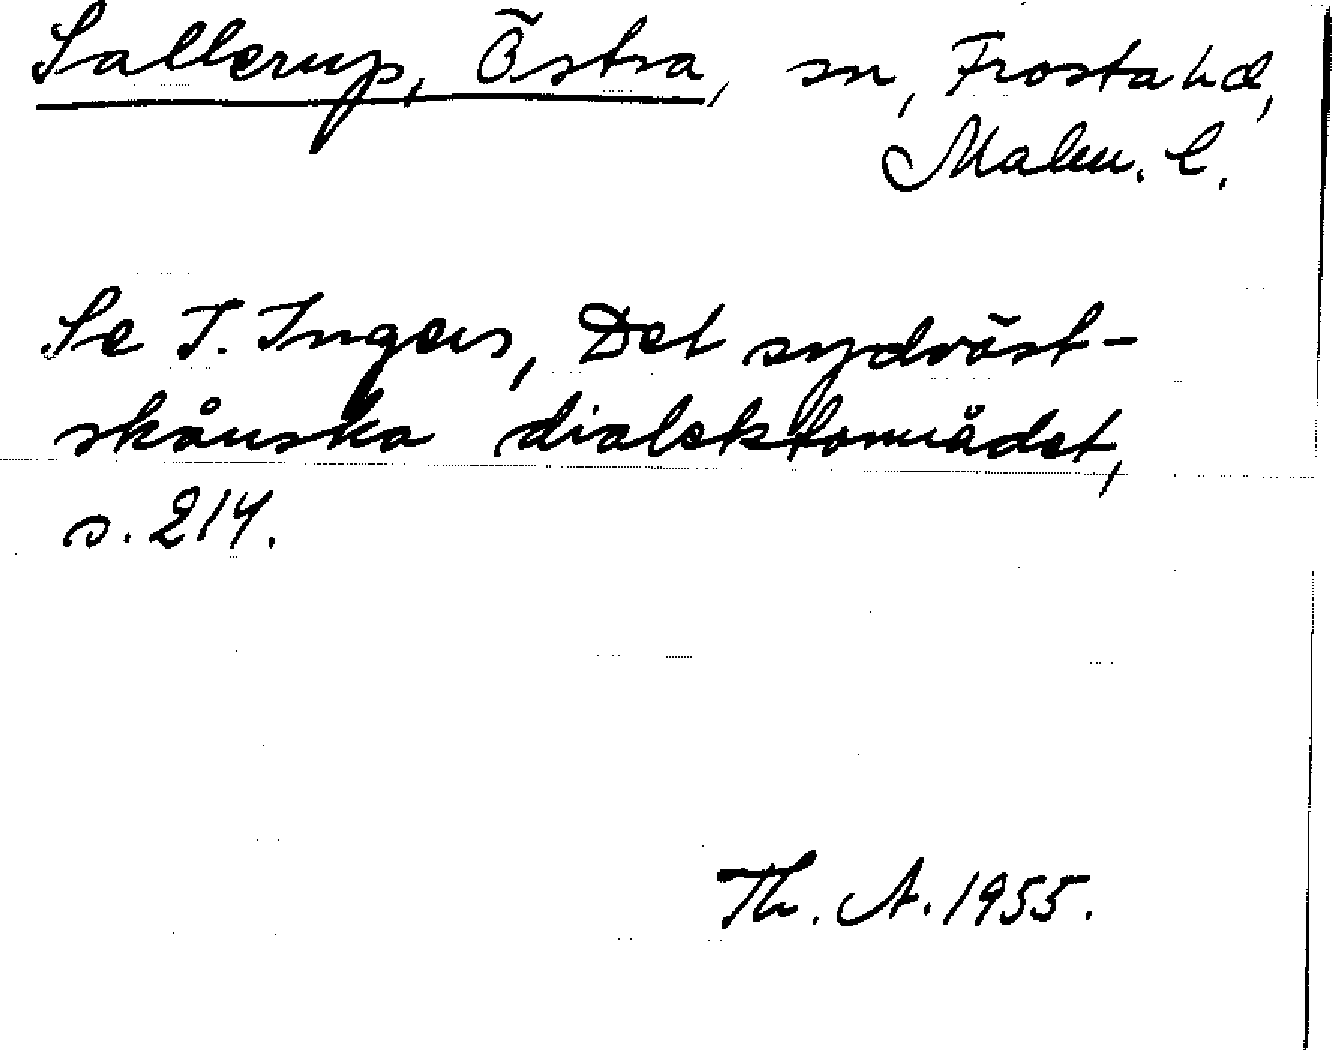 Sallerup, Östra, sn, Frosta hd,
Malm. l.
Se I. Ingers, Det sydväst-
skånska dialektområdet,
s. 214.
Th. A. 1955.